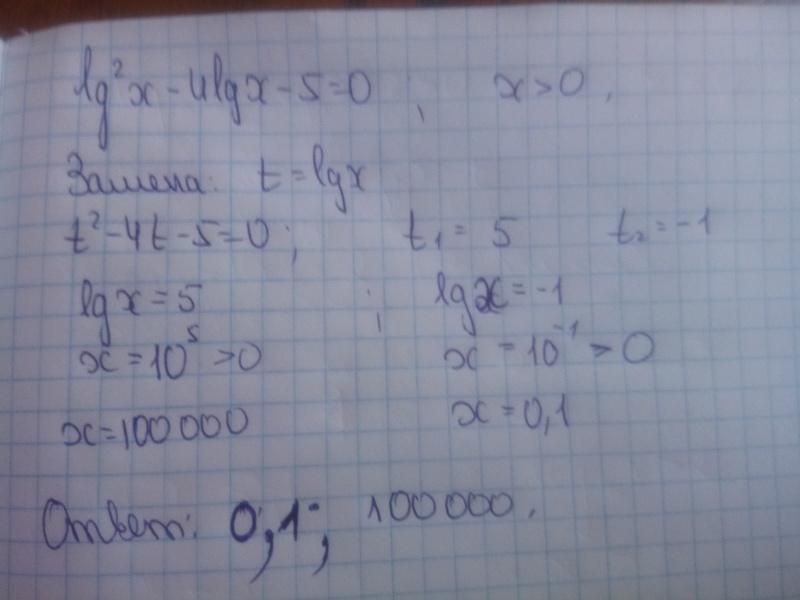 lg²x - 4lgx - 5 = 0 ; x > 0.
Замена: t = lgx
t² - 4t - 5 = 0 ; t₁ = 5 t₂ = -1
lgx = 5 ; lgx = -1
x = 10⁵ > 0 x = 10⁻¹ > 0
x = 100000 x = 0,1
Ответ: 0,1; 100000.